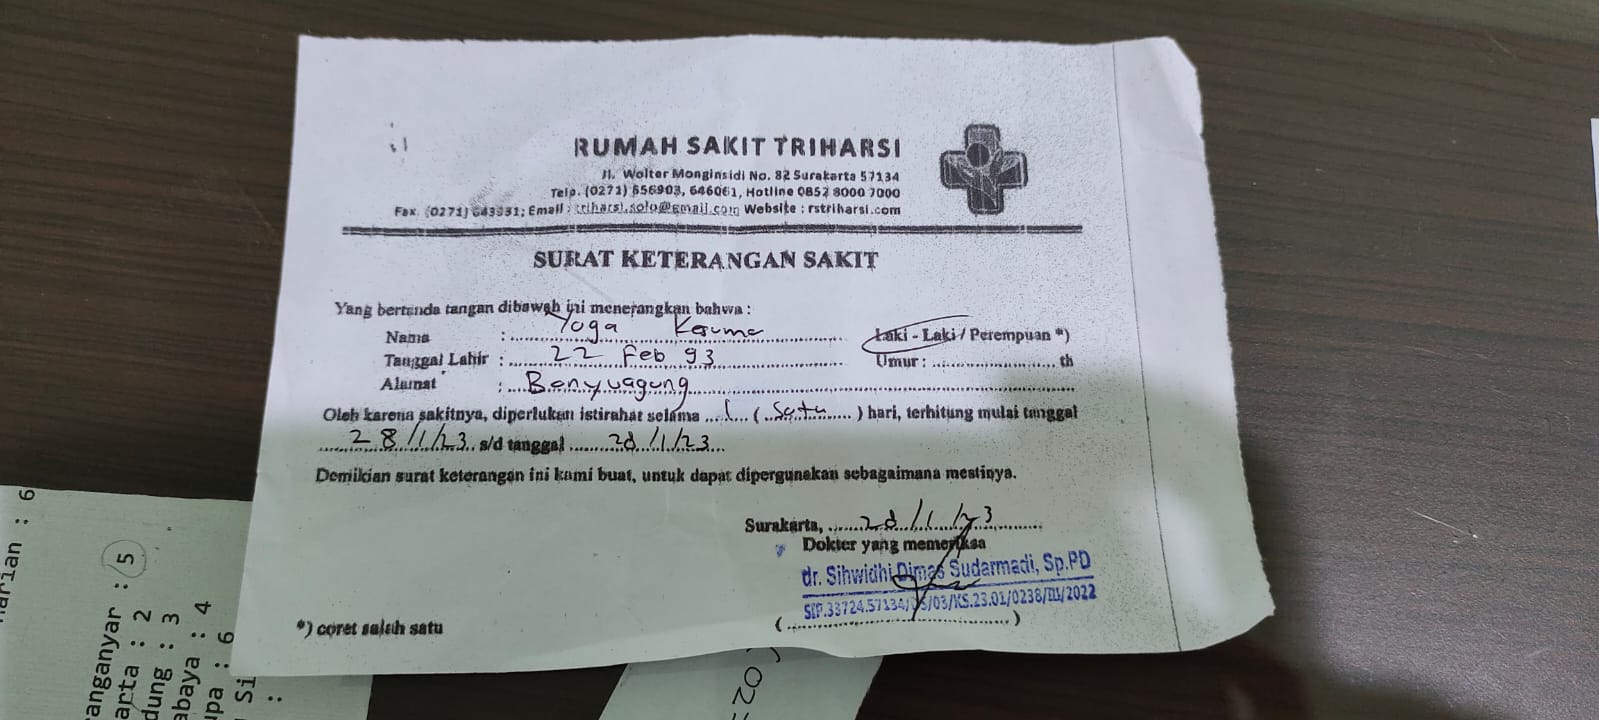 RUMAH SAKIT TRIHARSI
Jl. Wolter Monginsidi No. 82 Surakarta 57134
Telp. (0271) 656903, 646061, Hotline 0852 8000 7000
Fax. (0271) 643931; Email : triharsi.solo@gmail.com Website : rstriharsi.com
SURAT KETERANGAN SAKIT
Yang bertanda tangan dibawah ini menerangkan bahwa :
Nama : Yoga Kesuma Laki - Laki / Perempuan *)
Tanggal Lahir : 22 Feb 93 Umur : ........................ th
Alamat : Banyuagung
Oleh karena sakitnya, diperlukan istirahat selama 1 ( Satu ) hari, terhitung mulai tanggal
28/1/23 s/d tanggal 28/1/23
Demikian surat keterangan ini kami buat, untuk dapat dipergunakan sebagaimana mestinya.
Surakarta, 28/1/23
Dokter yang memeriksa
dr. Sihwidhi Dimas Sudarmadi, Sp.PD
SIP.33724.57134/DS/03/KS.23.01/0238/III/2022
(........................................)
*) coret salah satu
arian : 6
ranganyar : 5
arta : 2
dung : 3
abaya : 4
upa : 6
Si
: